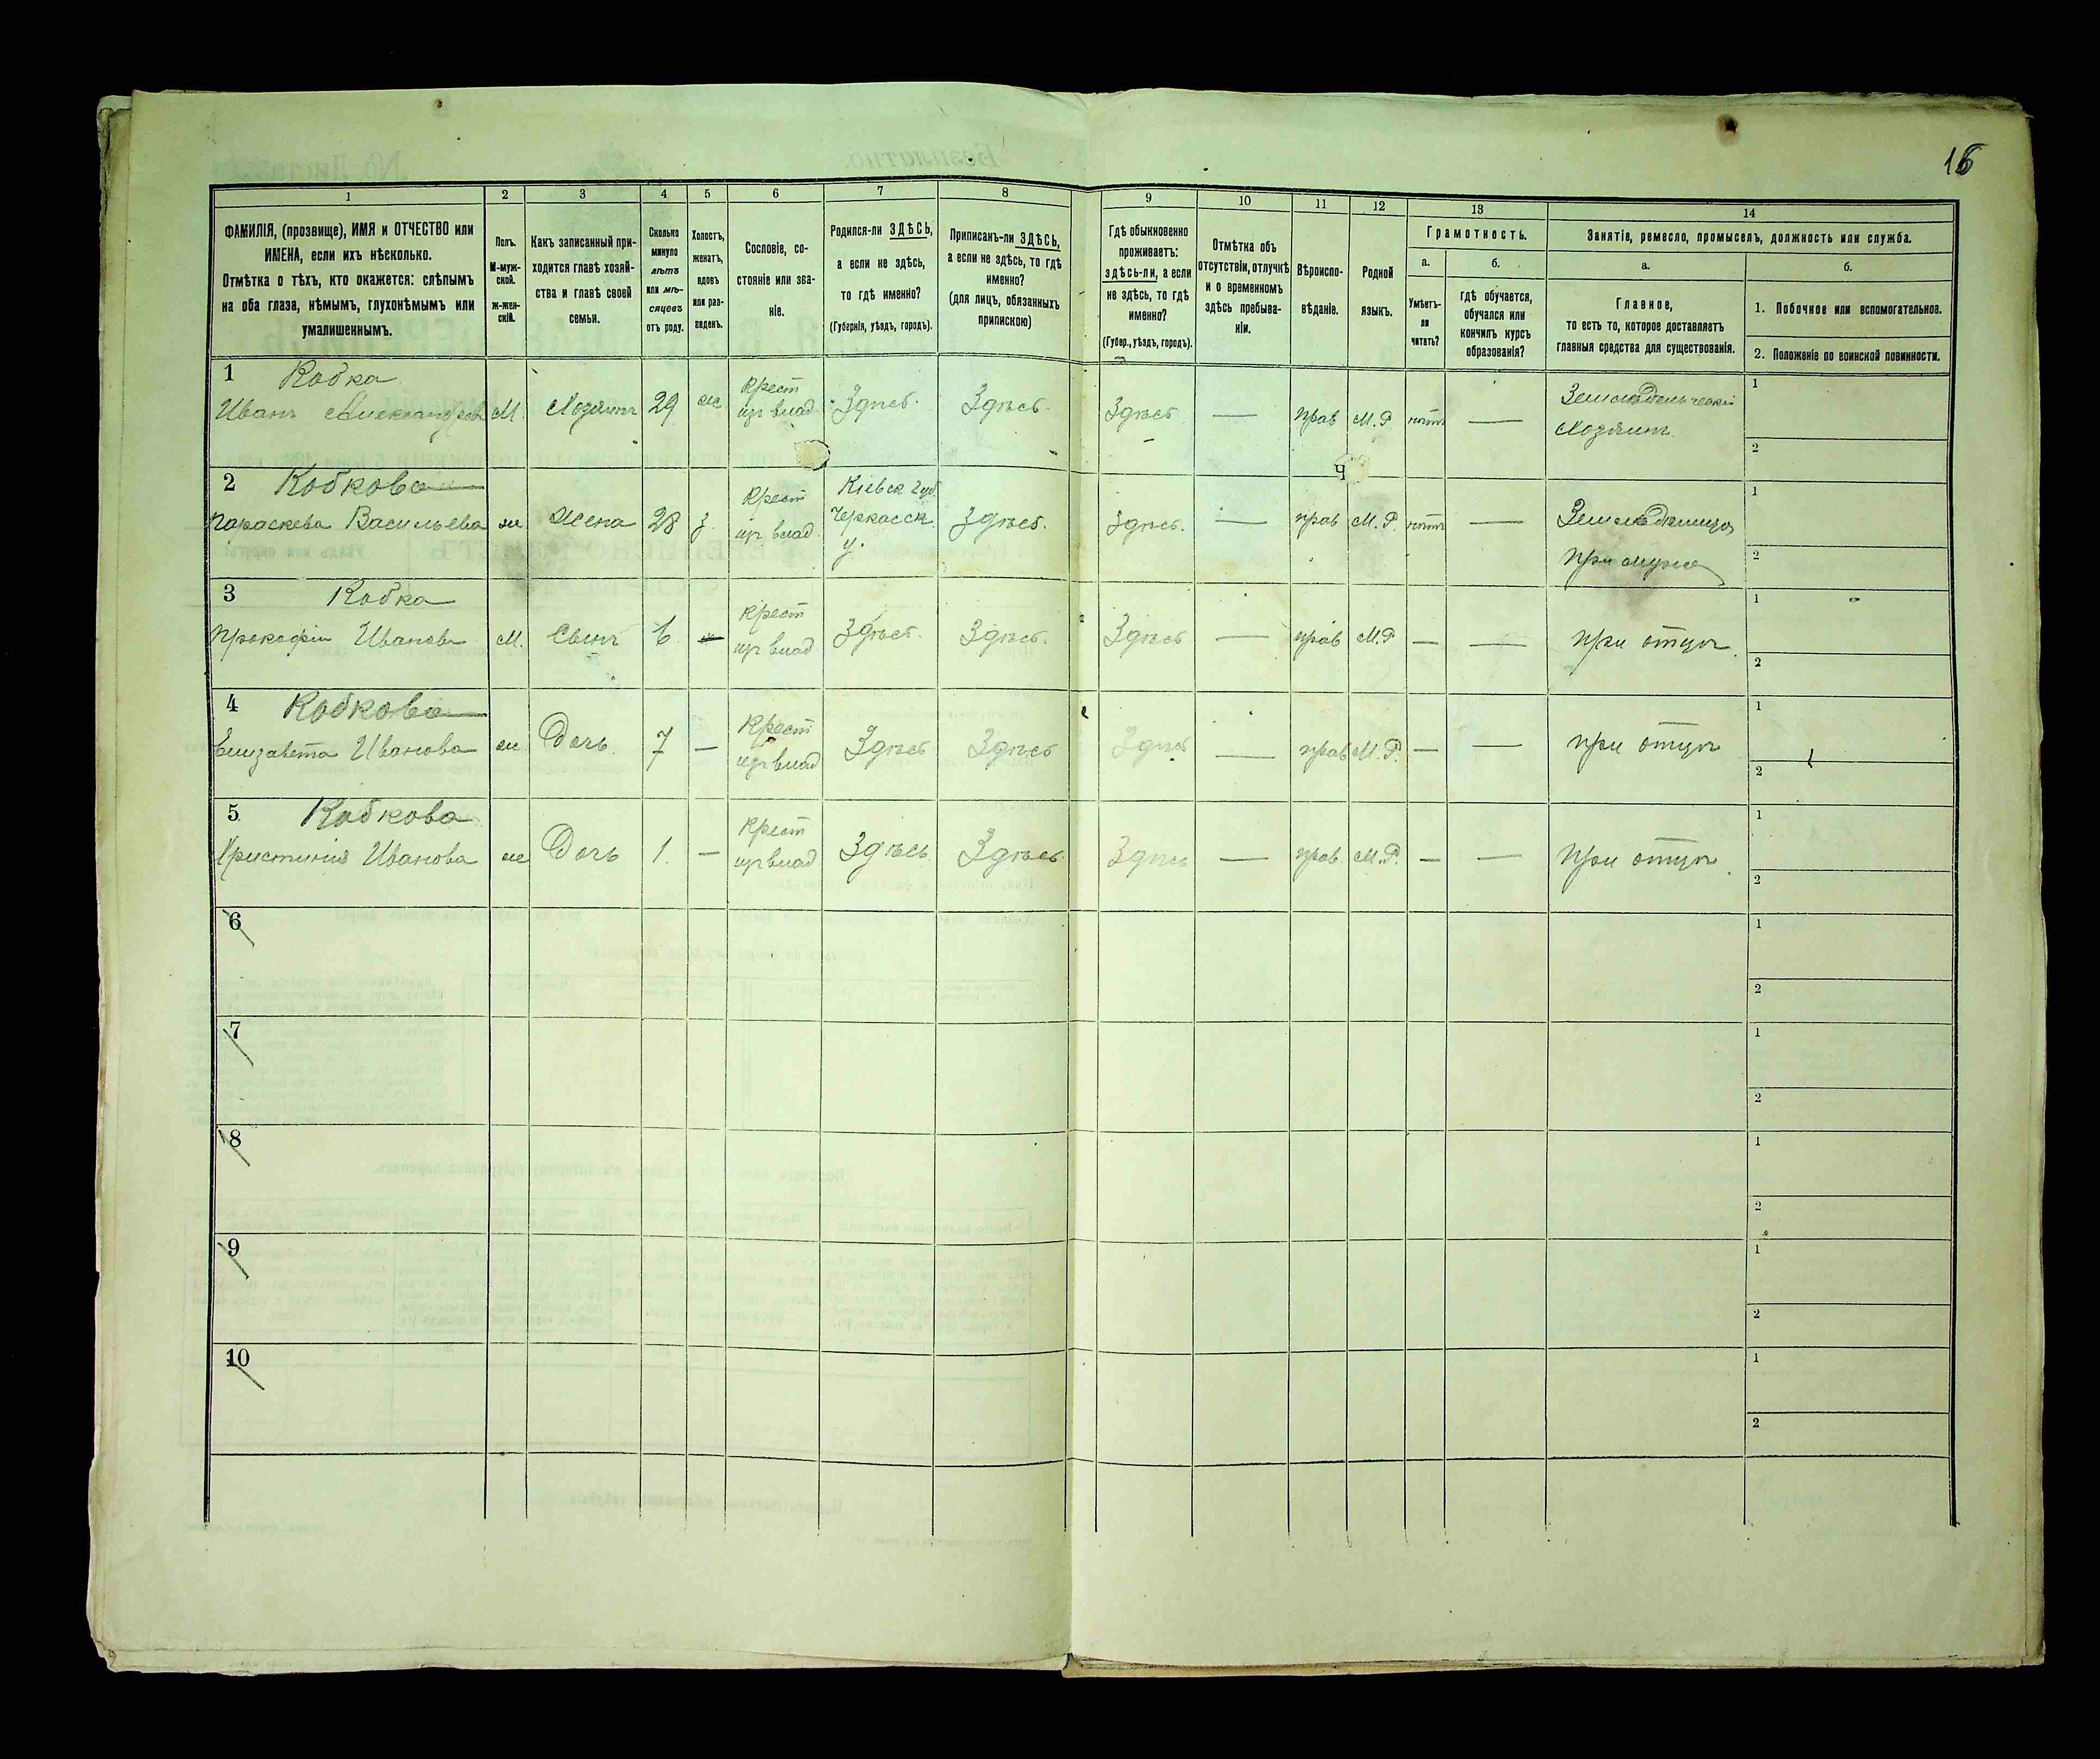 16
1
2
3
4
5
6
7
8
9
10
11
12
13
14
ФАМИЛІЯ, (прозвище), ИМЯ и ОТЧЕСТВО или
ИМЕНА, если ихъ нѣсколько.
Отмѣтка о тѣхъ, кто окажется: слѣпымъ
на оба глаза, нѣмымъ, глухонѣмымъ или
умалишеннымъ.
Полъ.
М-муж-
ской.
ж-жен-
скій.
Какъ записанный при-
ходится главѣ хозяй-
ства и главѣ своей
семьи.
Сколько
минуло
лѣтъ
или мѣ-
сяцевъ
отъ роду.
Холостъ,
женатъ,
вдовъ
или раз-
веденъ.
Сословіе, со-
стояніе или зва-
ніе.
Родился-ли ЗДѢСЬ,
а если не здѣсь,
то гдѣ именно?
(Губернія, уѣздъ, городъ).
Приписанъ-ли ЗДѢСЬ,
а если не здѣсь, то гдѣ
именно?
(для лицъ, обязанныхъ
припискою)
Гдѣ обыкновенно
проживаетъ:
здѣсь-ли, а если
не здѣсь, то гдѣ
именно?
(Губер., уѣздъ, городъ).
Отмѣтка объ
отсутствіи, отлучкѣ
и о временномъ
здѣсь пребыва-
ніи.
Вѣроиспо-
вѣданіе.
Родной
языкъ.
Грамотность.
а.
б.
Умѣетъ-
ли
читать?
гдѣ обучается,
обучался или
кончилъ курсъ
образованія?
Занятіе, ремесло, промыселъ, должность или служба.
а.
б.
Главное,
то есть то, которое доставляетъ
главныя средства для существованія.
1. Побочное или вспомогательное.
2. Положеніе по воинской повинности.
1 Кобка
Иванъ Александровъ М. Хозяинъ 29 ж. Крест Здѣсь. Здѣсь. Здѣсь — прав М.Р нѣтъ — Земледѣльческій
Хозяинъ
1
2
2 Кобкова
Параскева Васильева ж Жена 28 з. Крест Кіевск губ
Черкасск
у. Здѣсь. Здѣсь. — прав М.Р. нѣтъ —
при мужѣ
1
2
3 Кобка
Прокофій Иванов М. Сынъ 6 — Крест Здѣсь. Здѣсь. Здѣсь — прав М.Р — — при отцѣ
1
2
4 Кобкова
Елизавета Иванова ж Дочь. 7 — Крест Здѣсь Здѣсь Здѣсь — прав М.Р. — — при отцѣ
1
2
5 Кобкова
Христинія Иванова ж Дочь 1. — Крест Здѣсь. Здѣсь. Здѣсь — прав. М.Р. — — при отцѣ
1
2
6
1
2
7
1
2
8
1
2
9
1
2
10
1
2